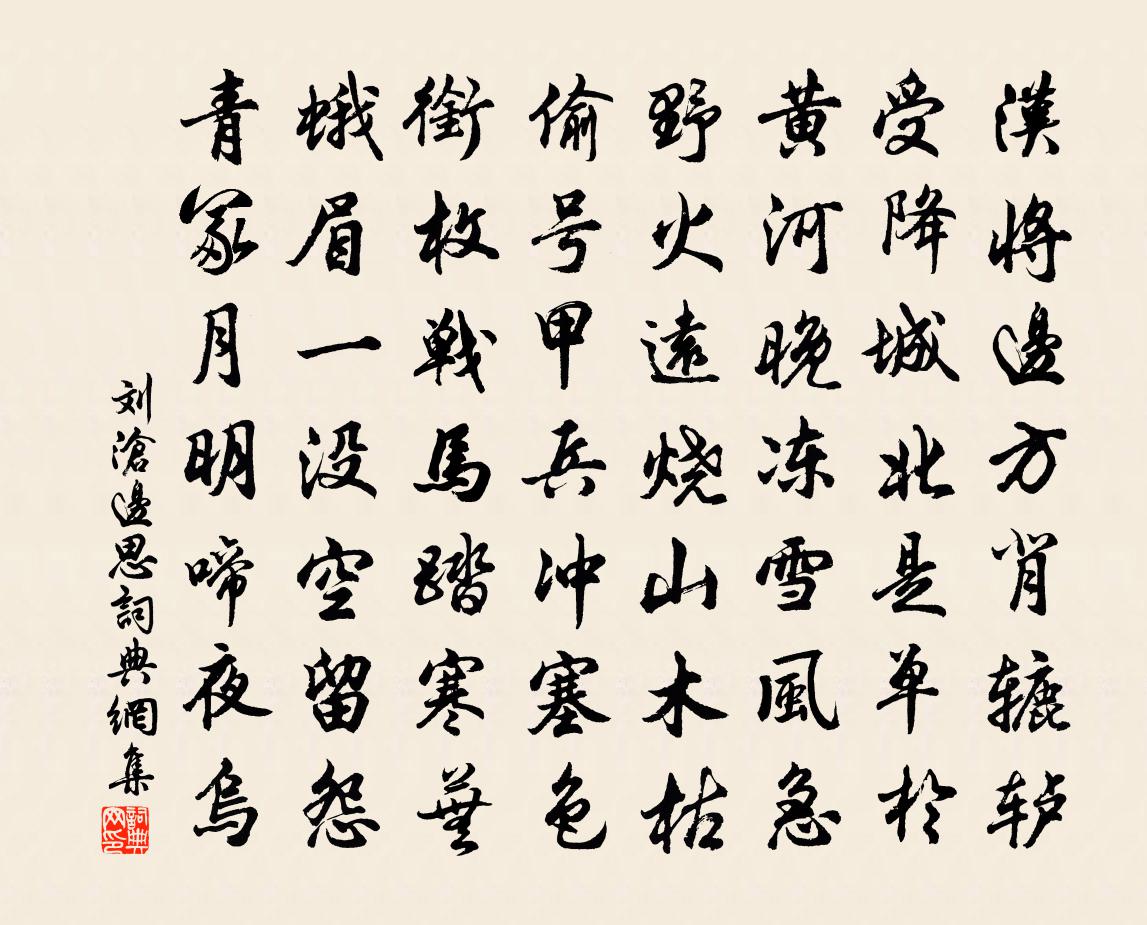 漢將邊方背辘轳
受降城北是单於
黄河晚冻雪風急
野火遠烧山木枯
偷号甲兵冲塞色
銜枚戰馬踏寒蕪
蛾眉一没空留怨
青冢月明啼夜烏
刘滄邊思詞典網集
詞典网印